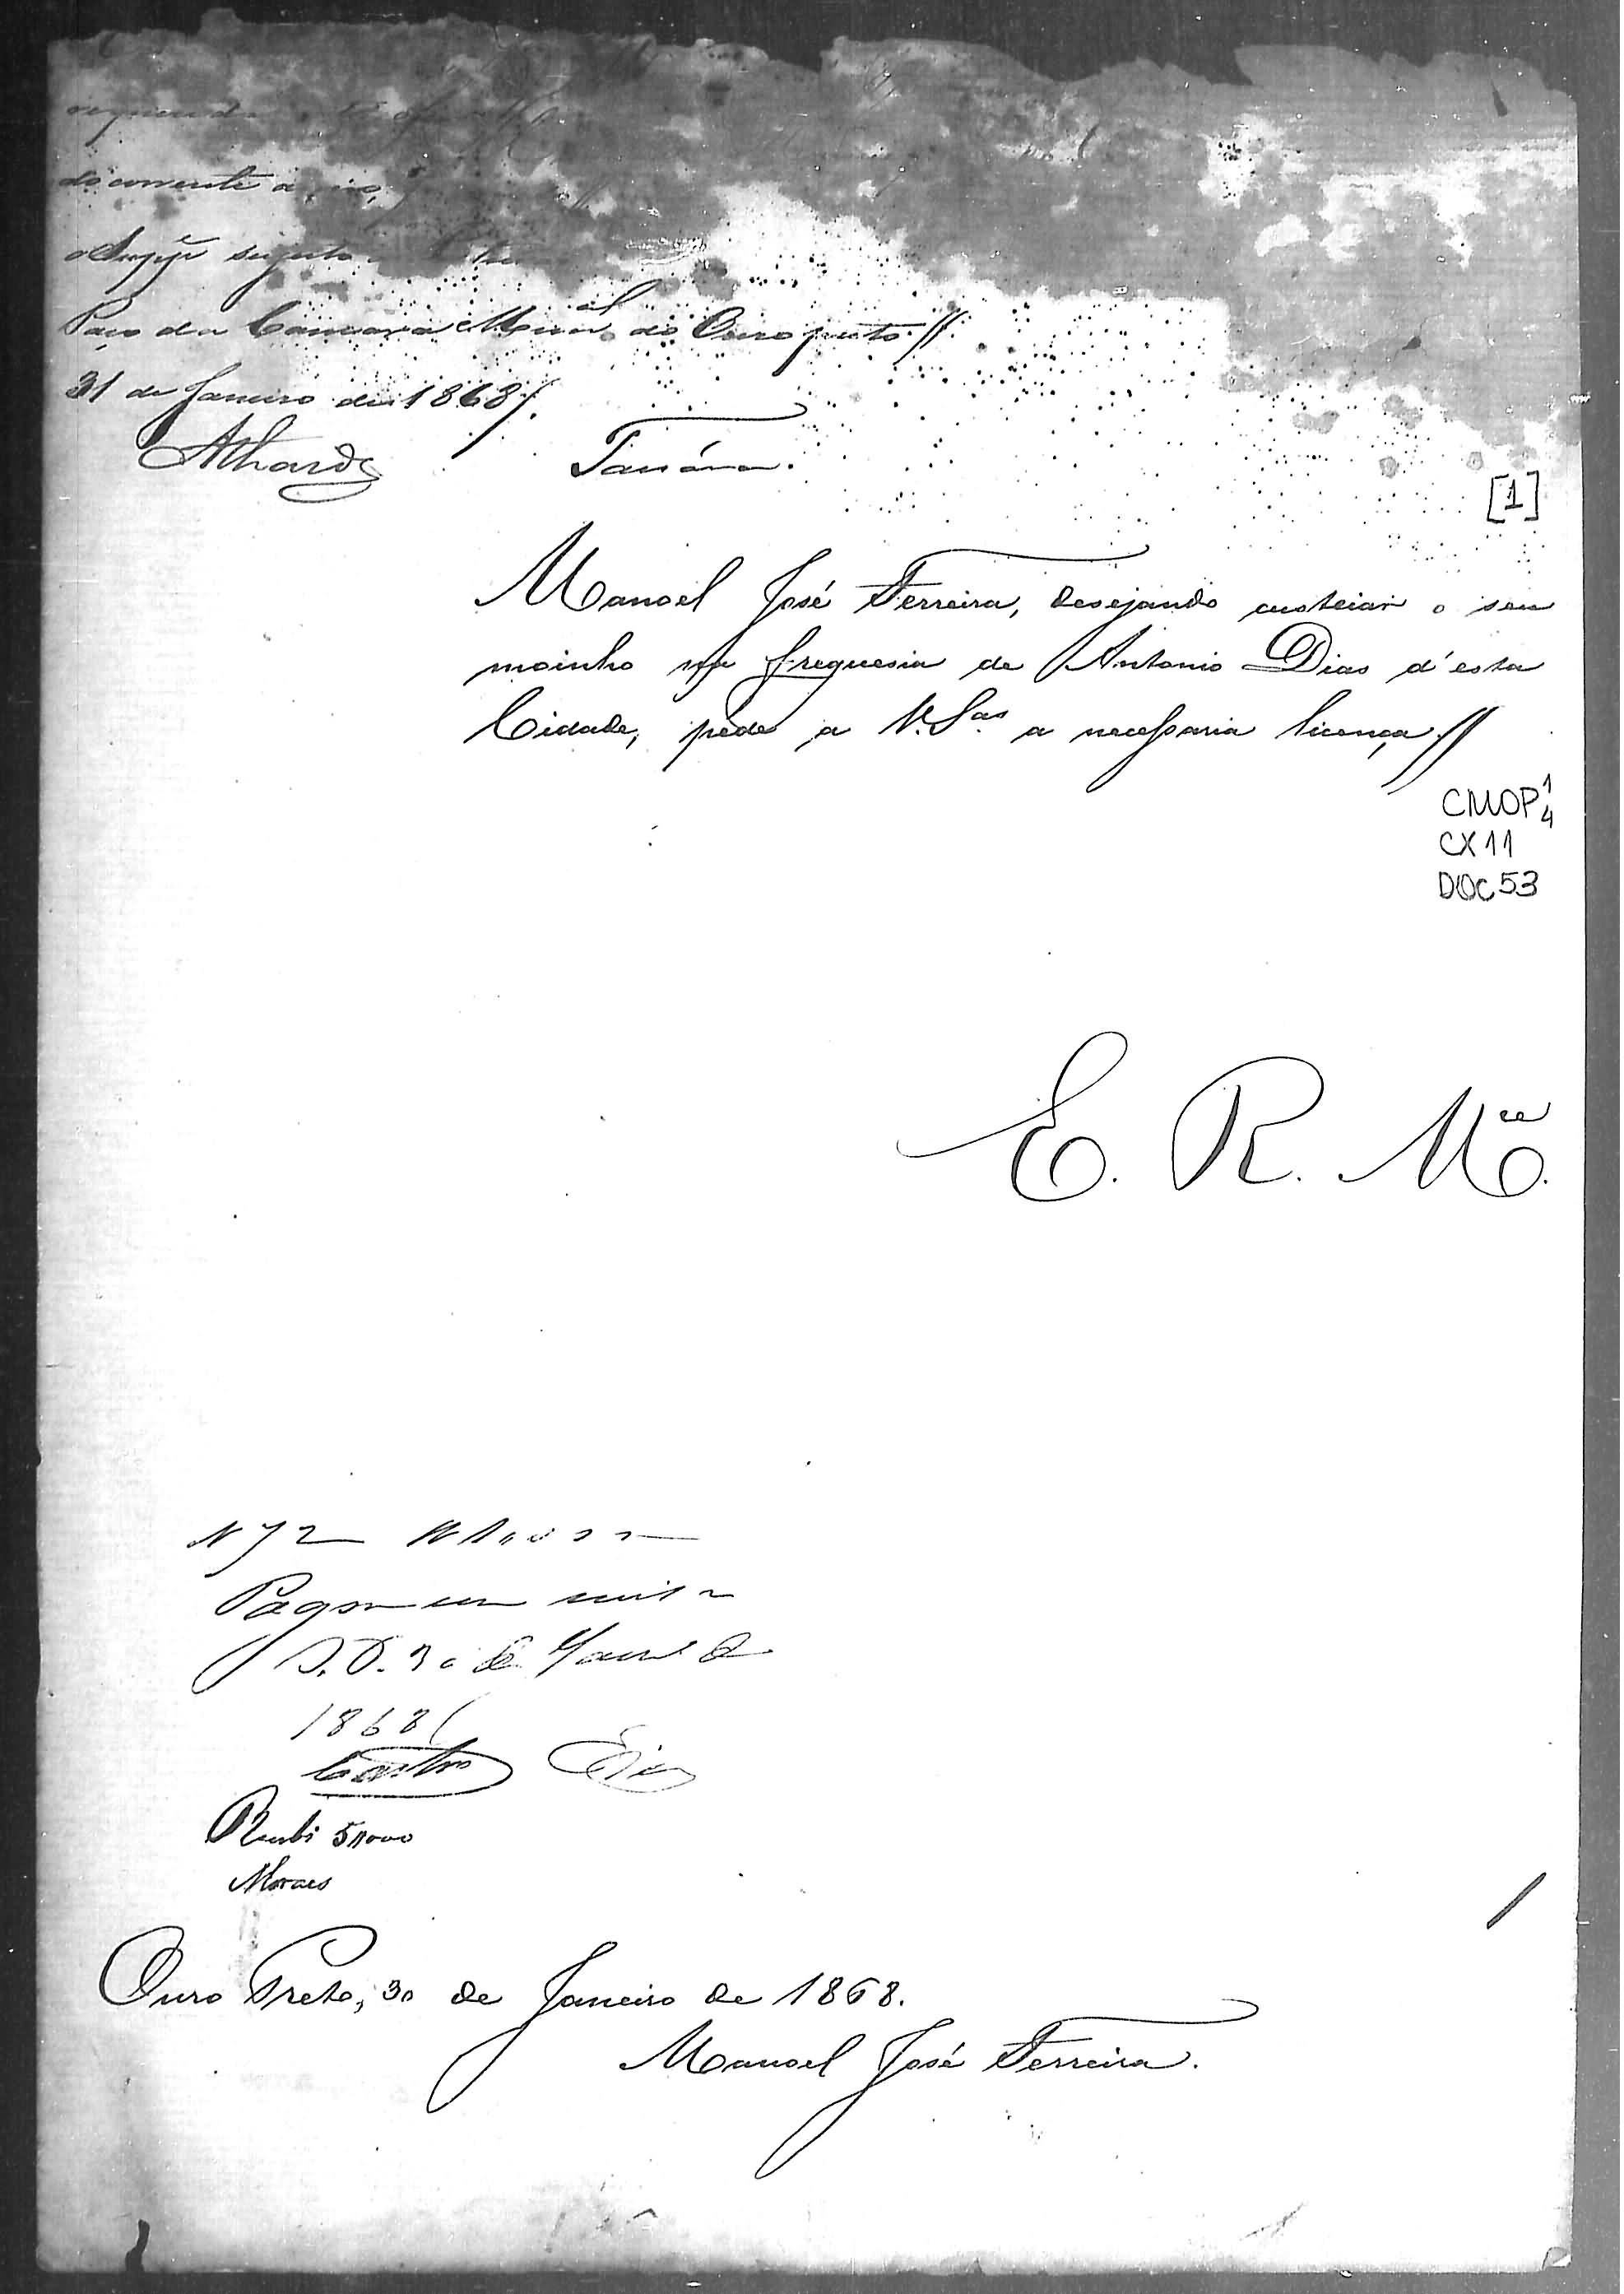 do corrente a
o Supp.e sujeito
Paço da Camara M.al do Ouro preto //
31 de Janeiro de 1868/.
Athayde
[1]
Manoel José Ferreira, desejando custeiar o seu
moinho na freguesia de Antonio Dias d'esta
Cidade, pede a V. S.as a necessaria licença //
CMOP 1/4
CX 11
DOC 53
E. R. M.ce
N 72
Pagou um mil r
O. P. 30 de Janr.o de
1868 /
Castro
Recebi 5$000
Moraes
Ouro Preto, 30 de Janeiro de 1868.
Manoel José Ferreira.